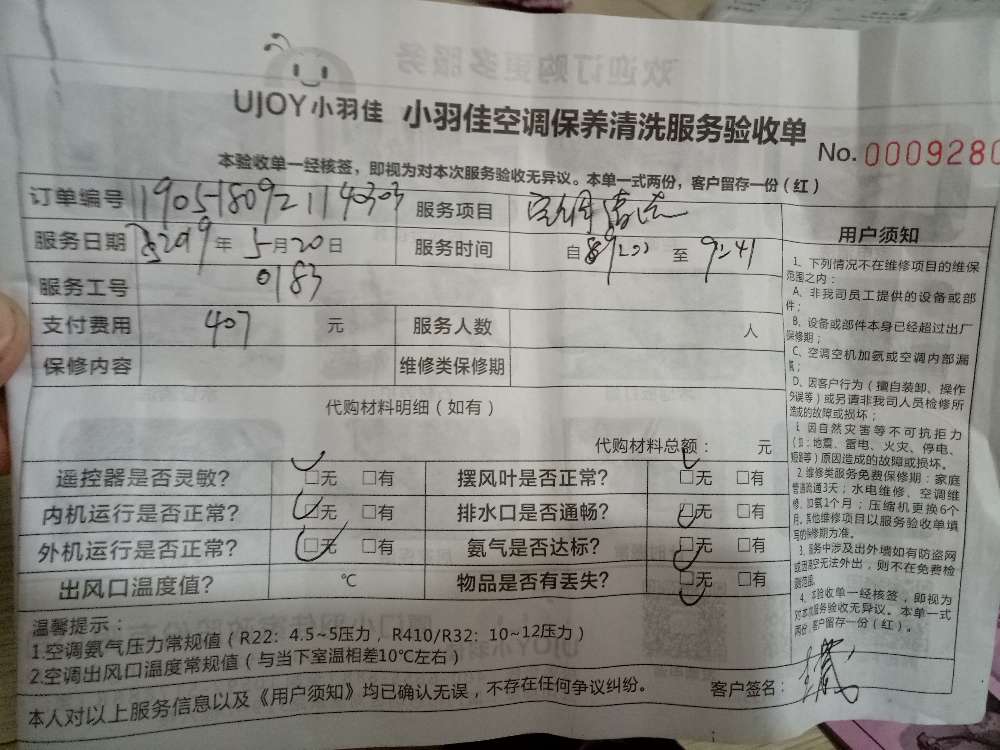 UJOY小羽佳 小羽佳空调保养清洗服务验收单
No. 0009280
本验收单一经核签，即视为对本次服务验收无异议。本单一式两份，客户留存一份（红）
订单编号 1905180921140303 服务项目 空调清洗
服务日期 2019年5月20日 服务时间 自 9:00 至 9:41
服务工号 0183
支付费用 407 元 服务人数 人
保修内容 维修类保修期
代购材料明细（如有）
代购材料总额： 元
遥控器是否灵敏？ □无 □有 摆风叶是否正常？ □无 □有
内机运行是否正常？ □无 □有 排水口是否通畅？ □无 □有
外机运行是否正常？ □无 □有 氨气是否达标？ □无 □有
出风口温度值？ ℃ 物品是否有丢失？ □无 □有
温馨提示：
1.空调氨气压力常规值（R22：4.5~5压力，R410/R32：10~12压力）
2.空调出风口温度常规值（与当下室温相差10℃左右）
本人对以上服务信息以及《用户须知》均已确认无误，不存在任何争议纠纷。
客户签名：
用户须知
1、下列情况不在维修项目的维保
范围之内：
A、非我司员工提供的设备或部
件；
B、设备或部件本身已经超过出厂
保修期；
C、空调空机加氨或空调内部漏
氨；
D、因客户行为（擅自装卸、操作
失误等）或另请非我司人员检修所
造成的故障或损坏；
E、因自然灾害等不可抗拒力
（如：地震、雷电、火灾、停电、
短路等）原因造成的故障或损坏。
2、维修类服务免费保修期：家庭
管道疏通3天；水电维修、空调维
修、加氨1个月；压缩机更换6个
月，其他维修项目以服务验收单填
写的保修期为准。
3、服务中涉及出外墙如有防盗网
或因高空无法外出，则不在免费检
测范围。
4、本验收单一经核签，即视为
对本次服务验收无异议。本单一式
两份，客户留存一份（红）。